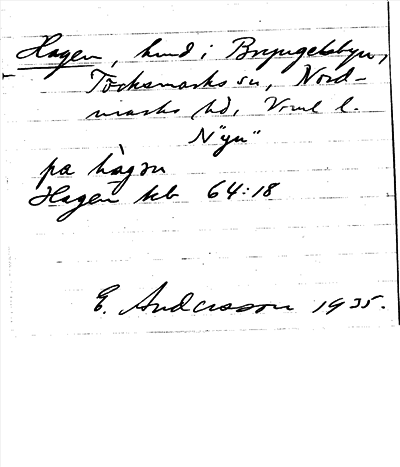 Hagen, hmd i Bryngelsbyn,
Töcksmarks sn, Nord-
marks hd, Vrml l.
N"yn"
pa hàgɜn
Hagen kb 64:18
E. Andersson 1935.